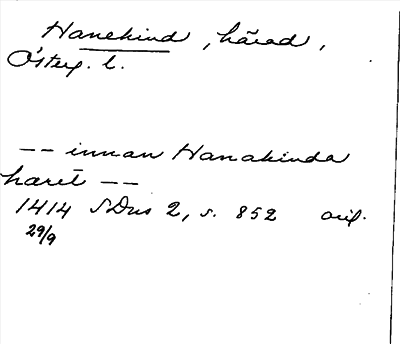 Hanekind, härad,
Österg. l.
-- innan Hanakinda
haret --
1414 SDns 2, s. 852 orig.
29/9